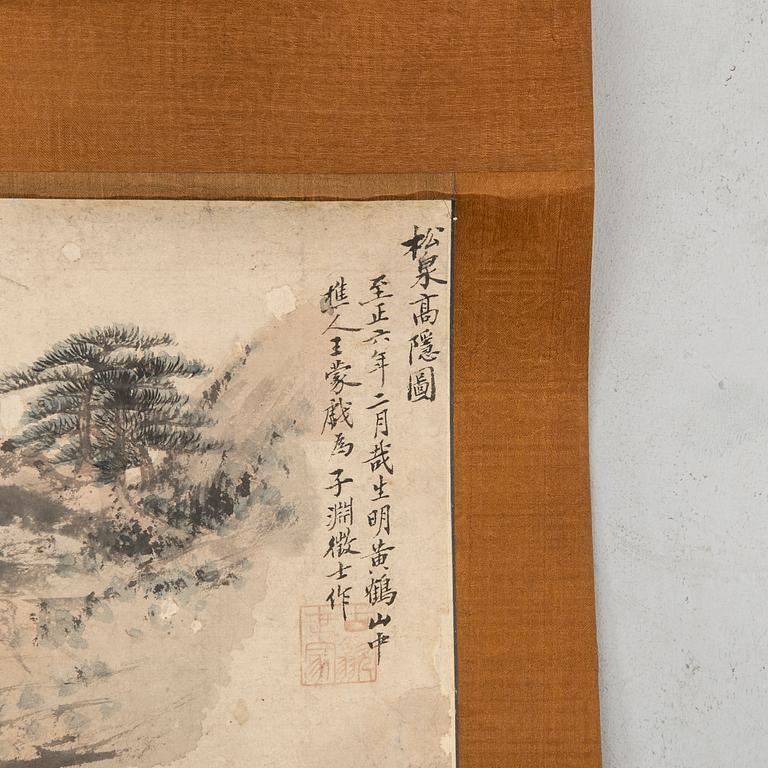 松泉高隱圖
至正六年二月哉生明黃鶴山中
樵人王蒙戲為子淵徵士作